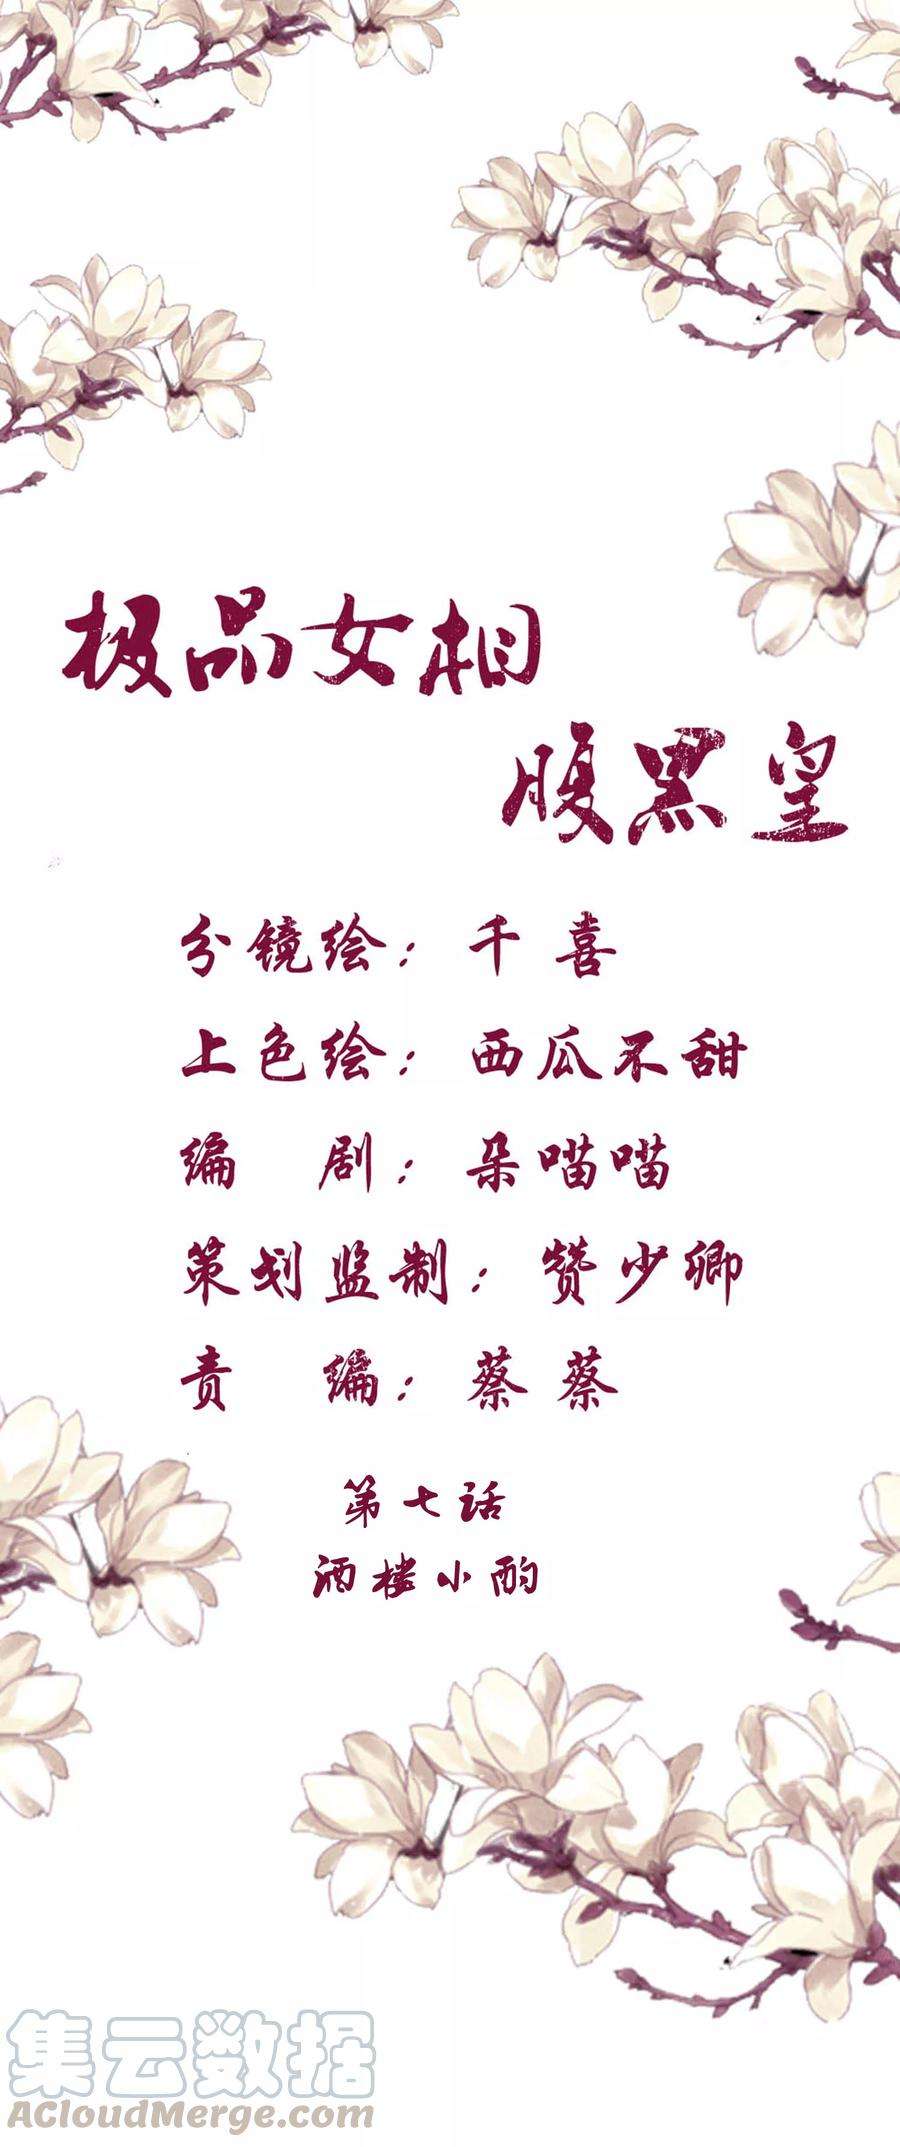 极品女相
腹黑皇
分镜绘：千喜
上色绘：西瓜不甜
编 剧：朵喵喵
策划监制：赞少卿
责 编：蔡蔡
第七话
酒楼小酌
集云数据
ACloudMerge.com